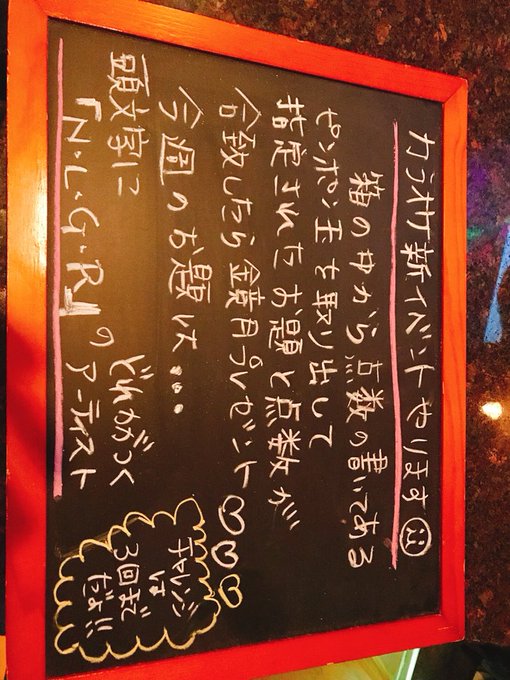 カラオケ新イベントやります
箱の中から点数の書いてある
ピンポン玉を取り出して
指定されたお題と点数が
合致したら鏡月プレゼント♡♡♡
今週のお題は…
頭文字に どれかがつく
「N・L・G・R」のアーティスト
チャレンジ
は
3回まで
だよ!!